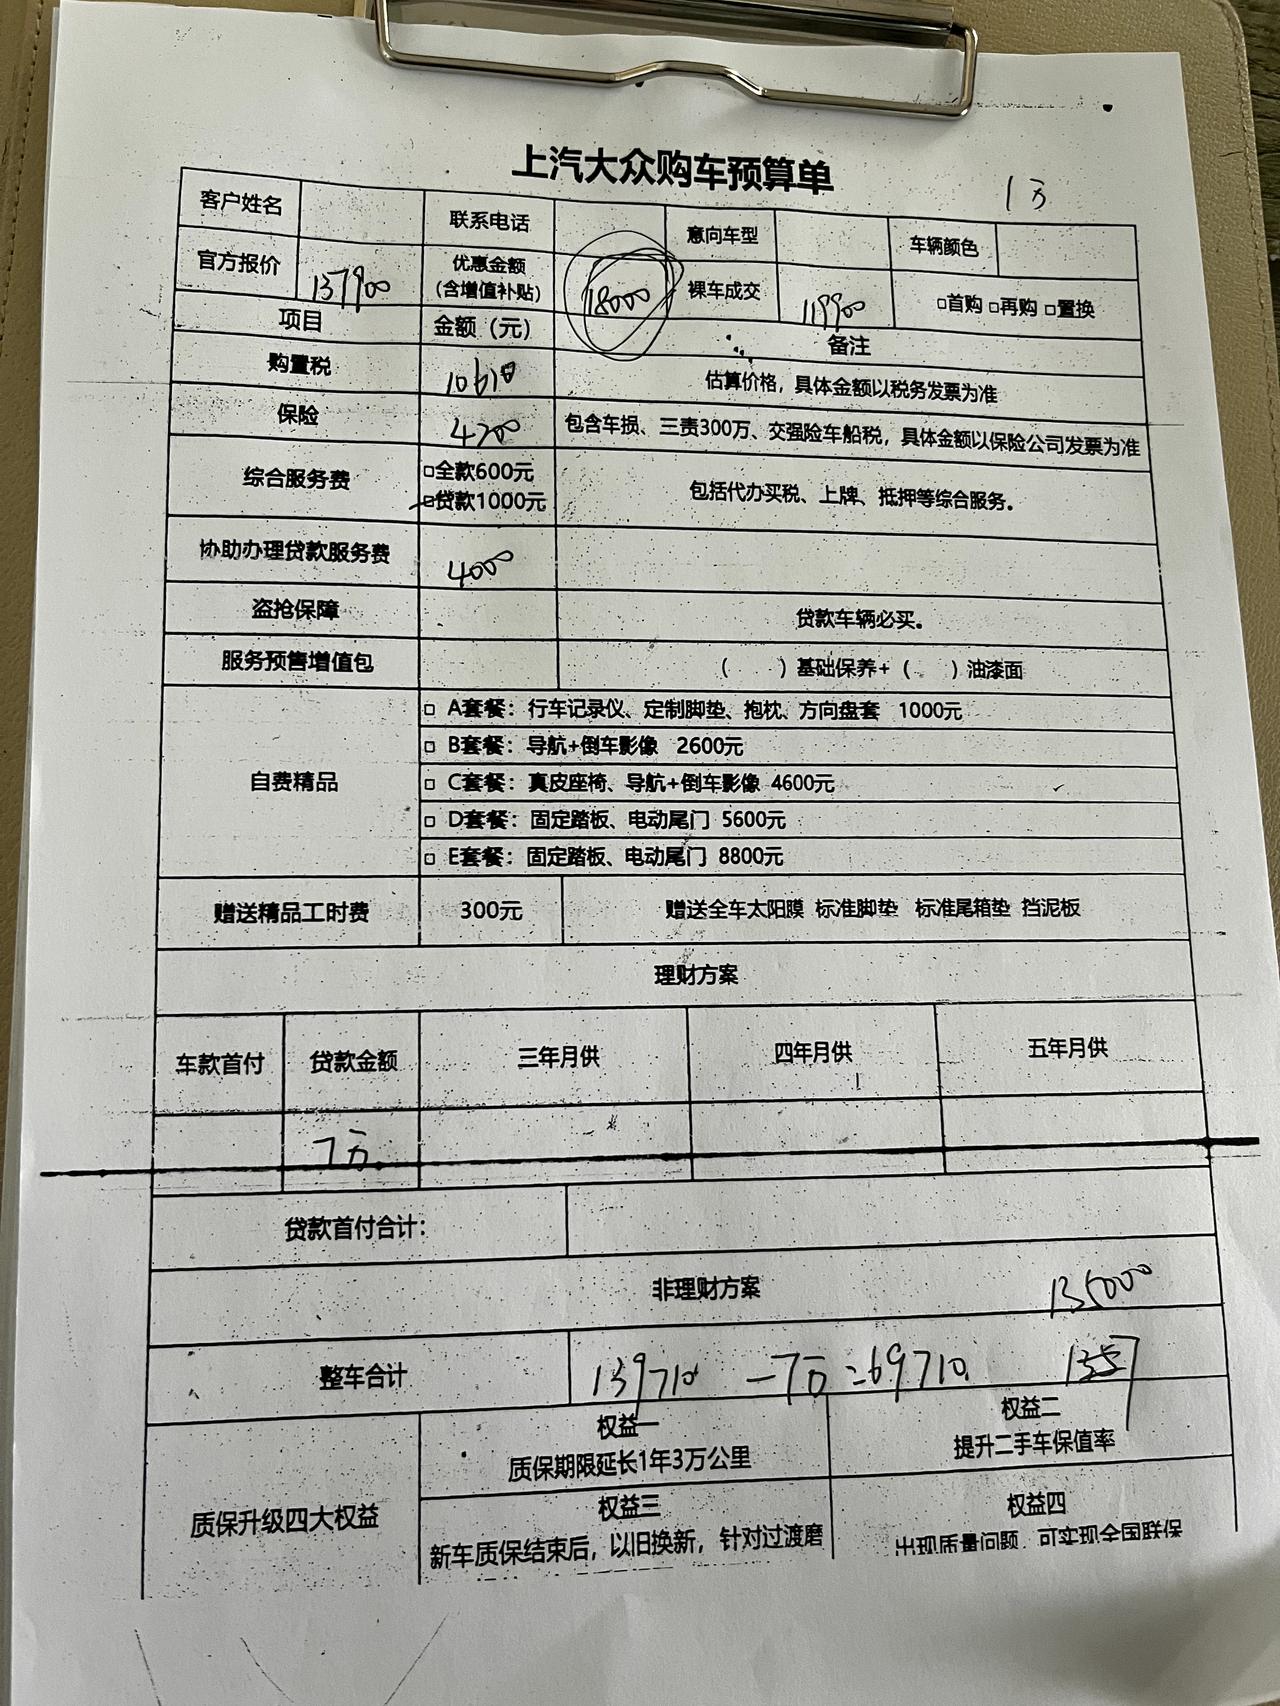 上汽大众购车预算单
1万
客户姓名 联系电话 意向车型 车辆颜色
官方报价 137900 优惠金额 (含增值补贴) 18000 裸车成交 119900 □首购 □再购 □置换
项目 金额（元） 备注
购置税 10610 估算价格，具体金额以税务发票为准
保险 4200 包含车损、三责300万、交强险车船税，具体金额以保险公司发票为准
综合服务费 □全款600元 包括代办买税、上牌、抵押等综合服务。
□贷款1000元
协助办理贷款服务费 4000
盗抢保障 贷款车辆必买。
服务预售增值包 （ ）基础保养+（ ）油漆面
自费精品
□ A套餐：行车记录仪、定制脚垫、抱枕、方向盘套 1000元
□ B套餐：导航+倒车影像 2600元
□ C套餐：真皮座椅、导航+倒车影像 4600元
□ D套餐：固定踏板、电动尾门 5600元
□ E套餐：固定踏板、电动尾门 8800元
赠送精品工时费 300元 赠送全车太阳膜 标准脚垫 标准尾箱垫 挡泥板
理财方案
车款首付 贷款金额 三年月供 四年月供 五年月供
7万
贷款首付合计：
非理财方案 135000
整车合计 139710 -7万=69710
质保升级四大权益
权益一 权益二
质保期限延长1年3万公里 提升二手车保值率
权益三 权益四
新车质保结束后，以旧换新，针对过渡磨 出现质量问题，可实现全国联保